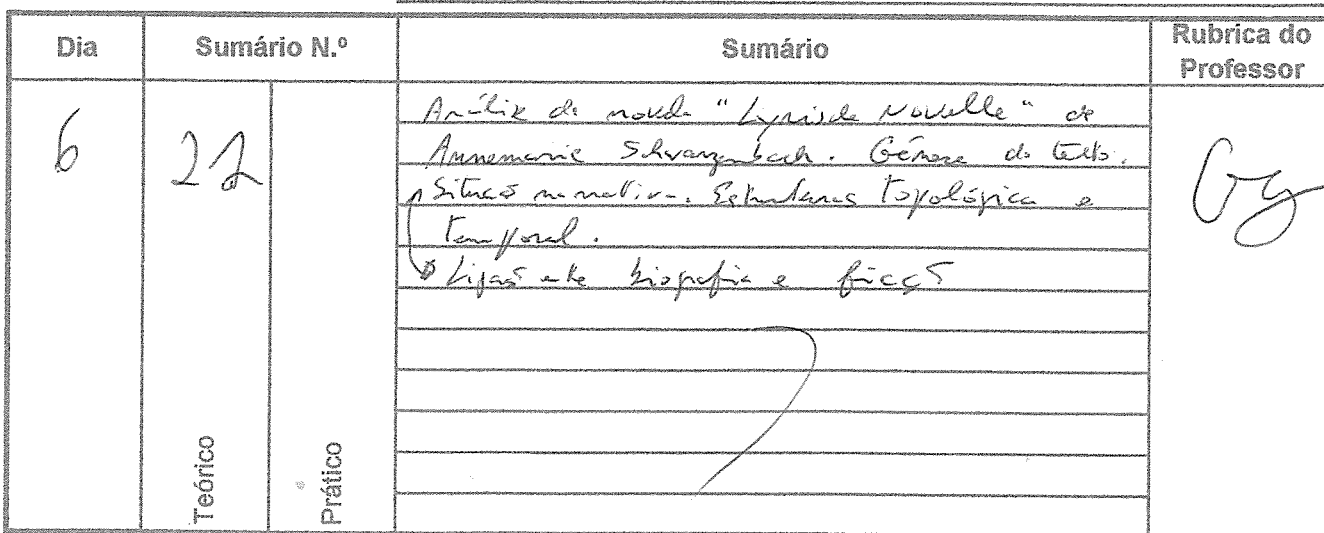 Dia Sumário N.º Sumário Rubrica do
Professor
6 22
Análise da novela "Lyrische Novelle" de
Annemarie Schwarzenbach. Género do texto.
Situaç narrativa. Estruturas topológica e
temporal.
Ligaç entre biografia e ficç
Teórico
Prático